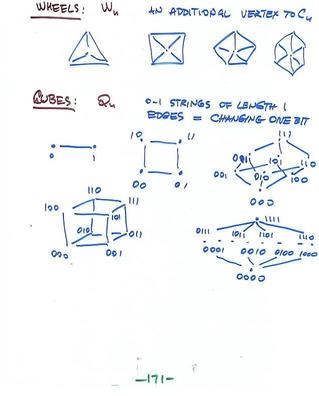 WHEELS: Wn AN ADDITIONAL VERTEX TO Cn
CUBES: Qn 0-1 STRINGS OF LENGTH 1
EDGES = CHANGING ONE BIT
0 1
10 11
00 01
111
011 101 110
001 010 100
000
110 111
100 101
010 011
000 001
1111
0111 1011 1101 1110
0001 0010 0100 1000
0000
-171-